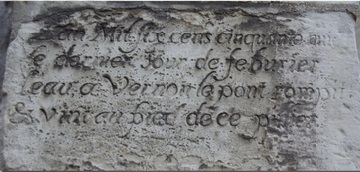 Lan Mil six cens cinquante
le dernier Jour de feburier
leau a Vernon le pont rompit
& vint au pied de ce pilier